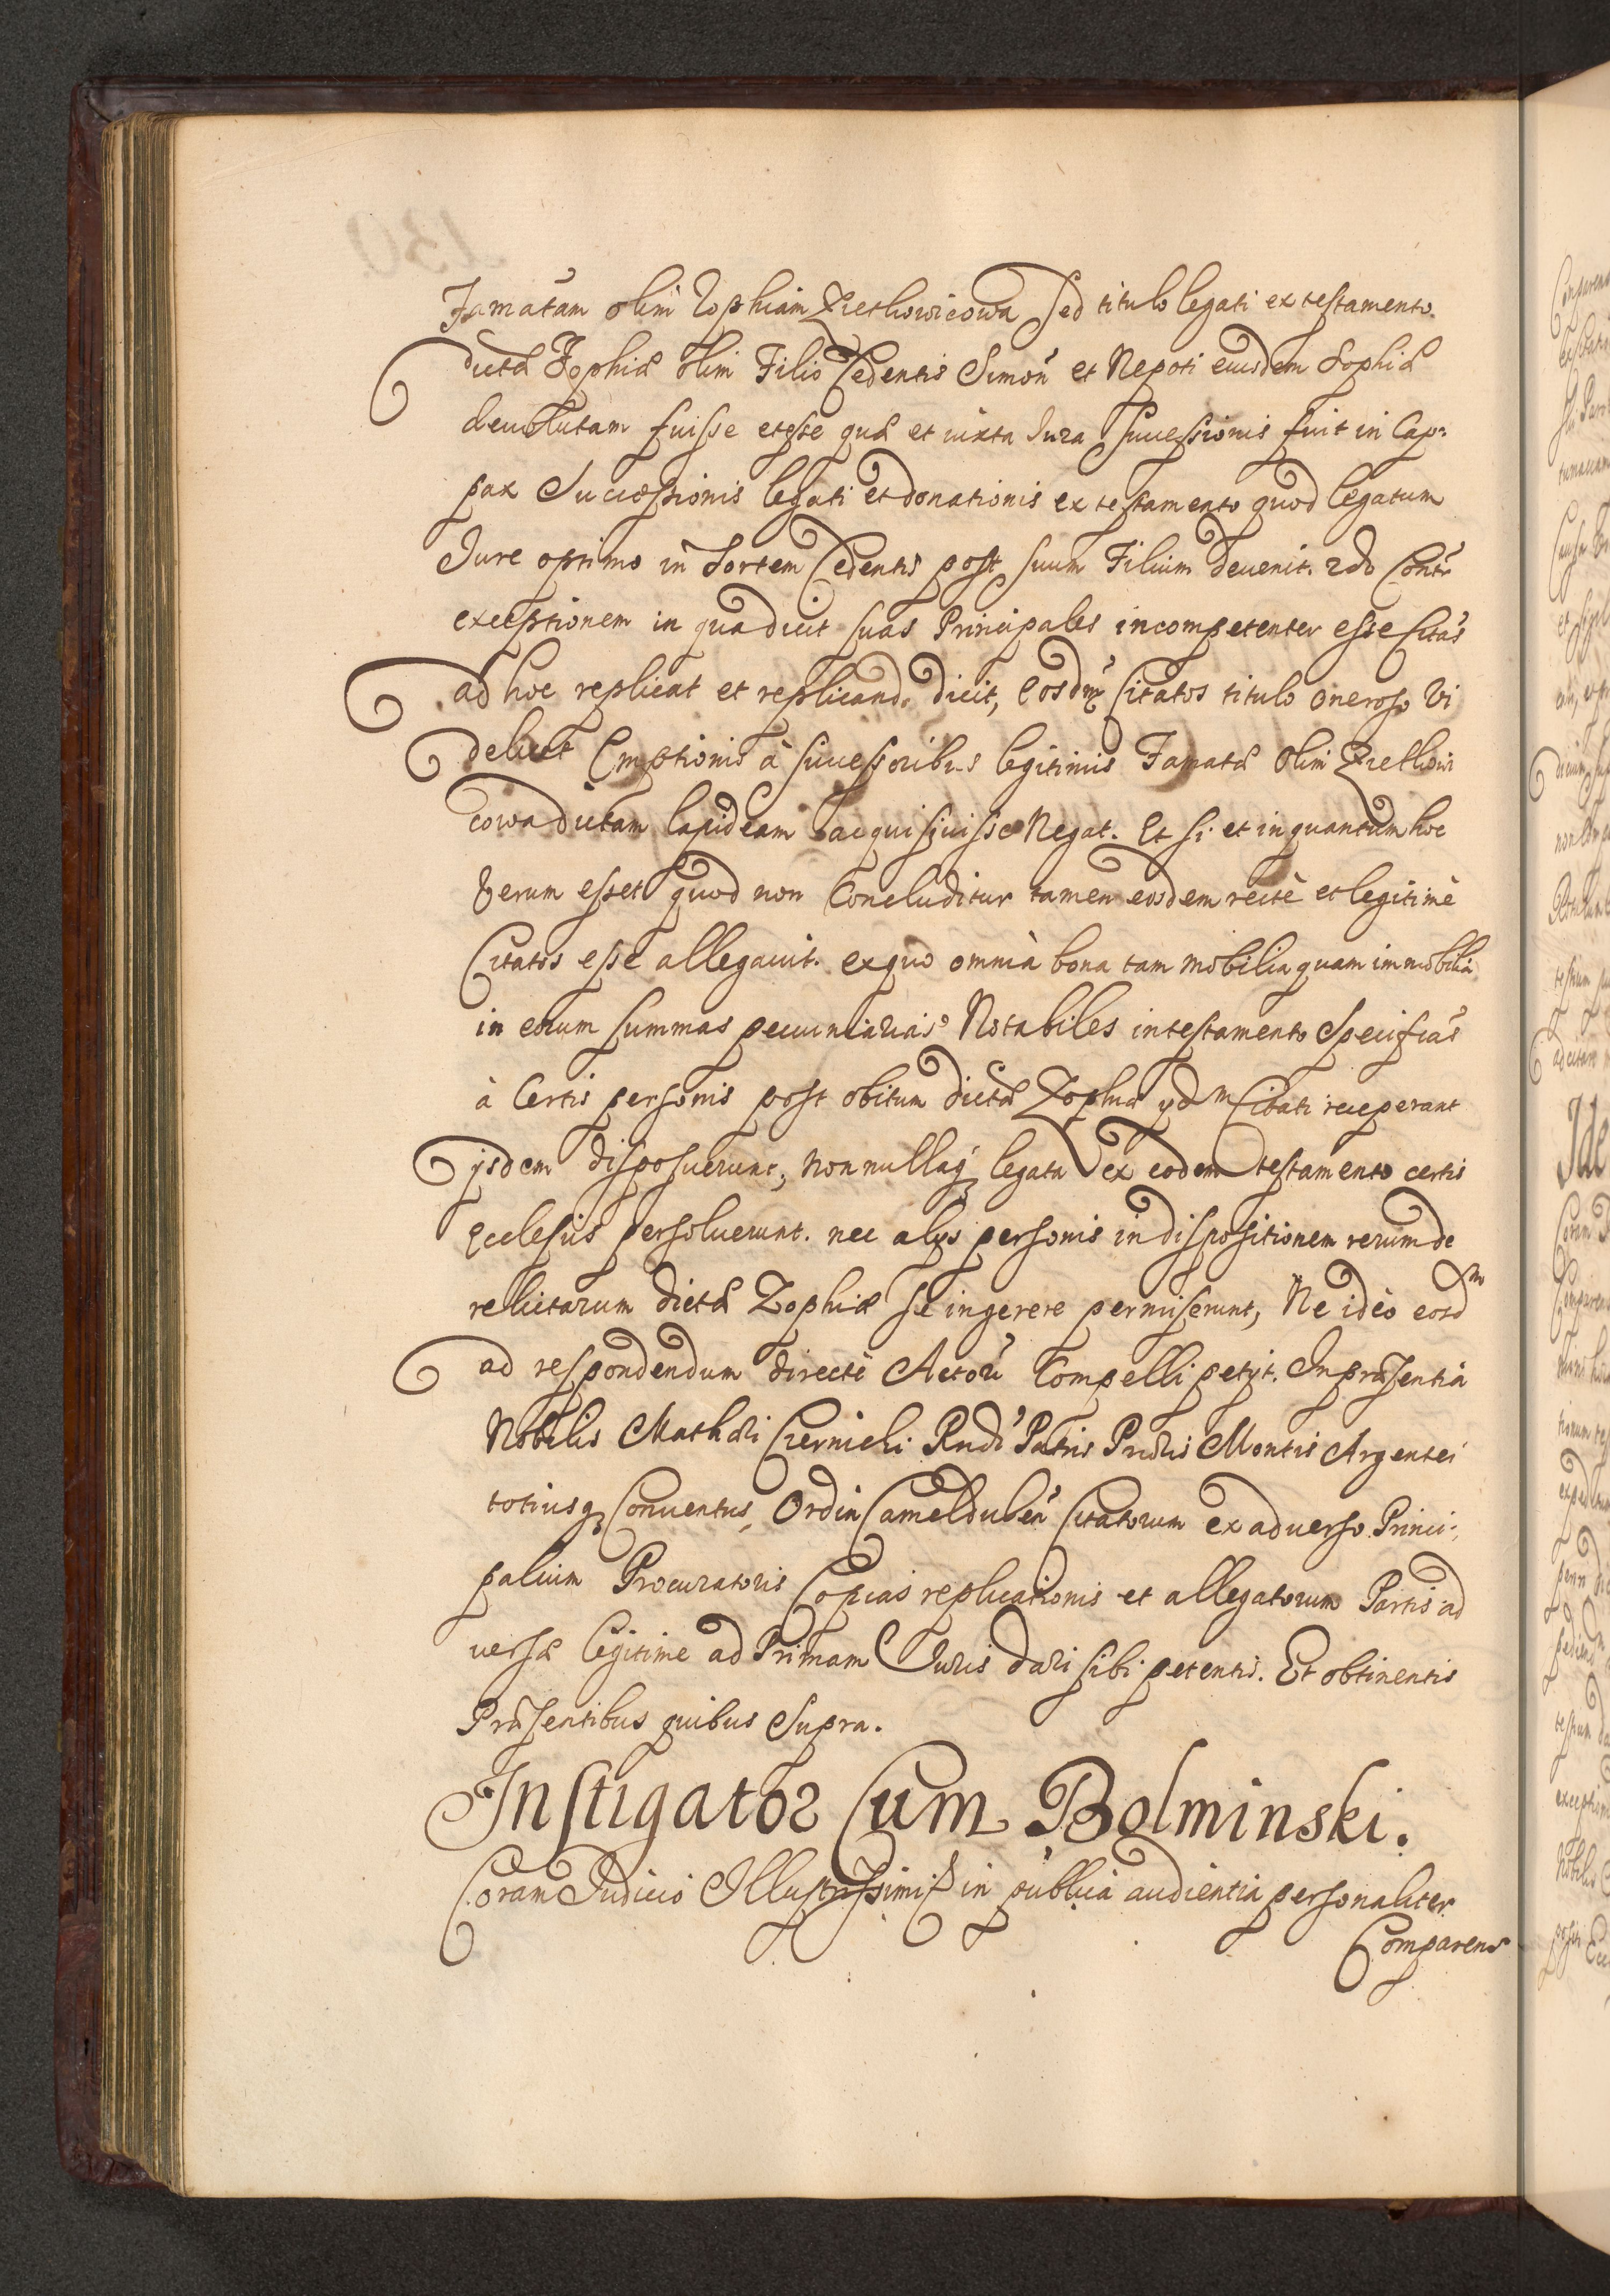 Famatam olim Zophiam Zretlowicowa Sed titulo legati ex testamento
dictæ Zophiæ olim Filio Cedentis Simon̄ et Nepoti eiusdem Sophiæ
deuolutam fuisse et esse quæ et iuxta Jura Successionis fuit in Cap:
pax Successionis legati et donationis ex testamento quod legatum
Jure optimo in Sortem Cedentis post suum Filium deuenit. 2do Contr̄
exceptionem in qua dicit suas Principales incompetenter esse Citas̄
ad hoc replicat et replicando dicit, Eosdm̄ Citatos titulo oneroso Vi
delicet Emptionis à successoribus legitimis Famatæ olim Zretlowi
cowa dictam lapideam acquisiuisse Negat. Et si et in quantum hoc
Verum esset quod non Concluditur tamen eosdem rectè et legitimè
Citatos esse allegauit. ex quo omnia bona tam mobilia quam immobilia
in eorum summas pecuniarias Notabiles in testamento Specificas̄
à Certis personis post obitum dictæ Zophiæ ydm Citati receperant
ijsdem disposuerunt, non nullaq legata ex eodem testamento certis
Ecclesiis persoluerunt. nec alys personis in dispositionem rerum de
relictarum dictæ Zophiæ se ingerere permiserunt, Ne ideò eosdm
ad respondendum directè Actorī Compelli petyt. In præsentia
Nobilis Mathæi Czernicki Rndi Patris Prioris Montis Argentei
totiusq Conuentus, Ordin Cameldulen̄ Citatorum ex aduerso Princi:
palium Procuratoris Copias replicationis et allegatorum Partis ad
uersæ legitime ad Primam Juris dari sibi petentis. Et obtinentis
Præsentibus quibus Supra.
Instigator Cum Bolminski.
Coram Judicio Illustrissimi in publica audientia personaliter
Comparens